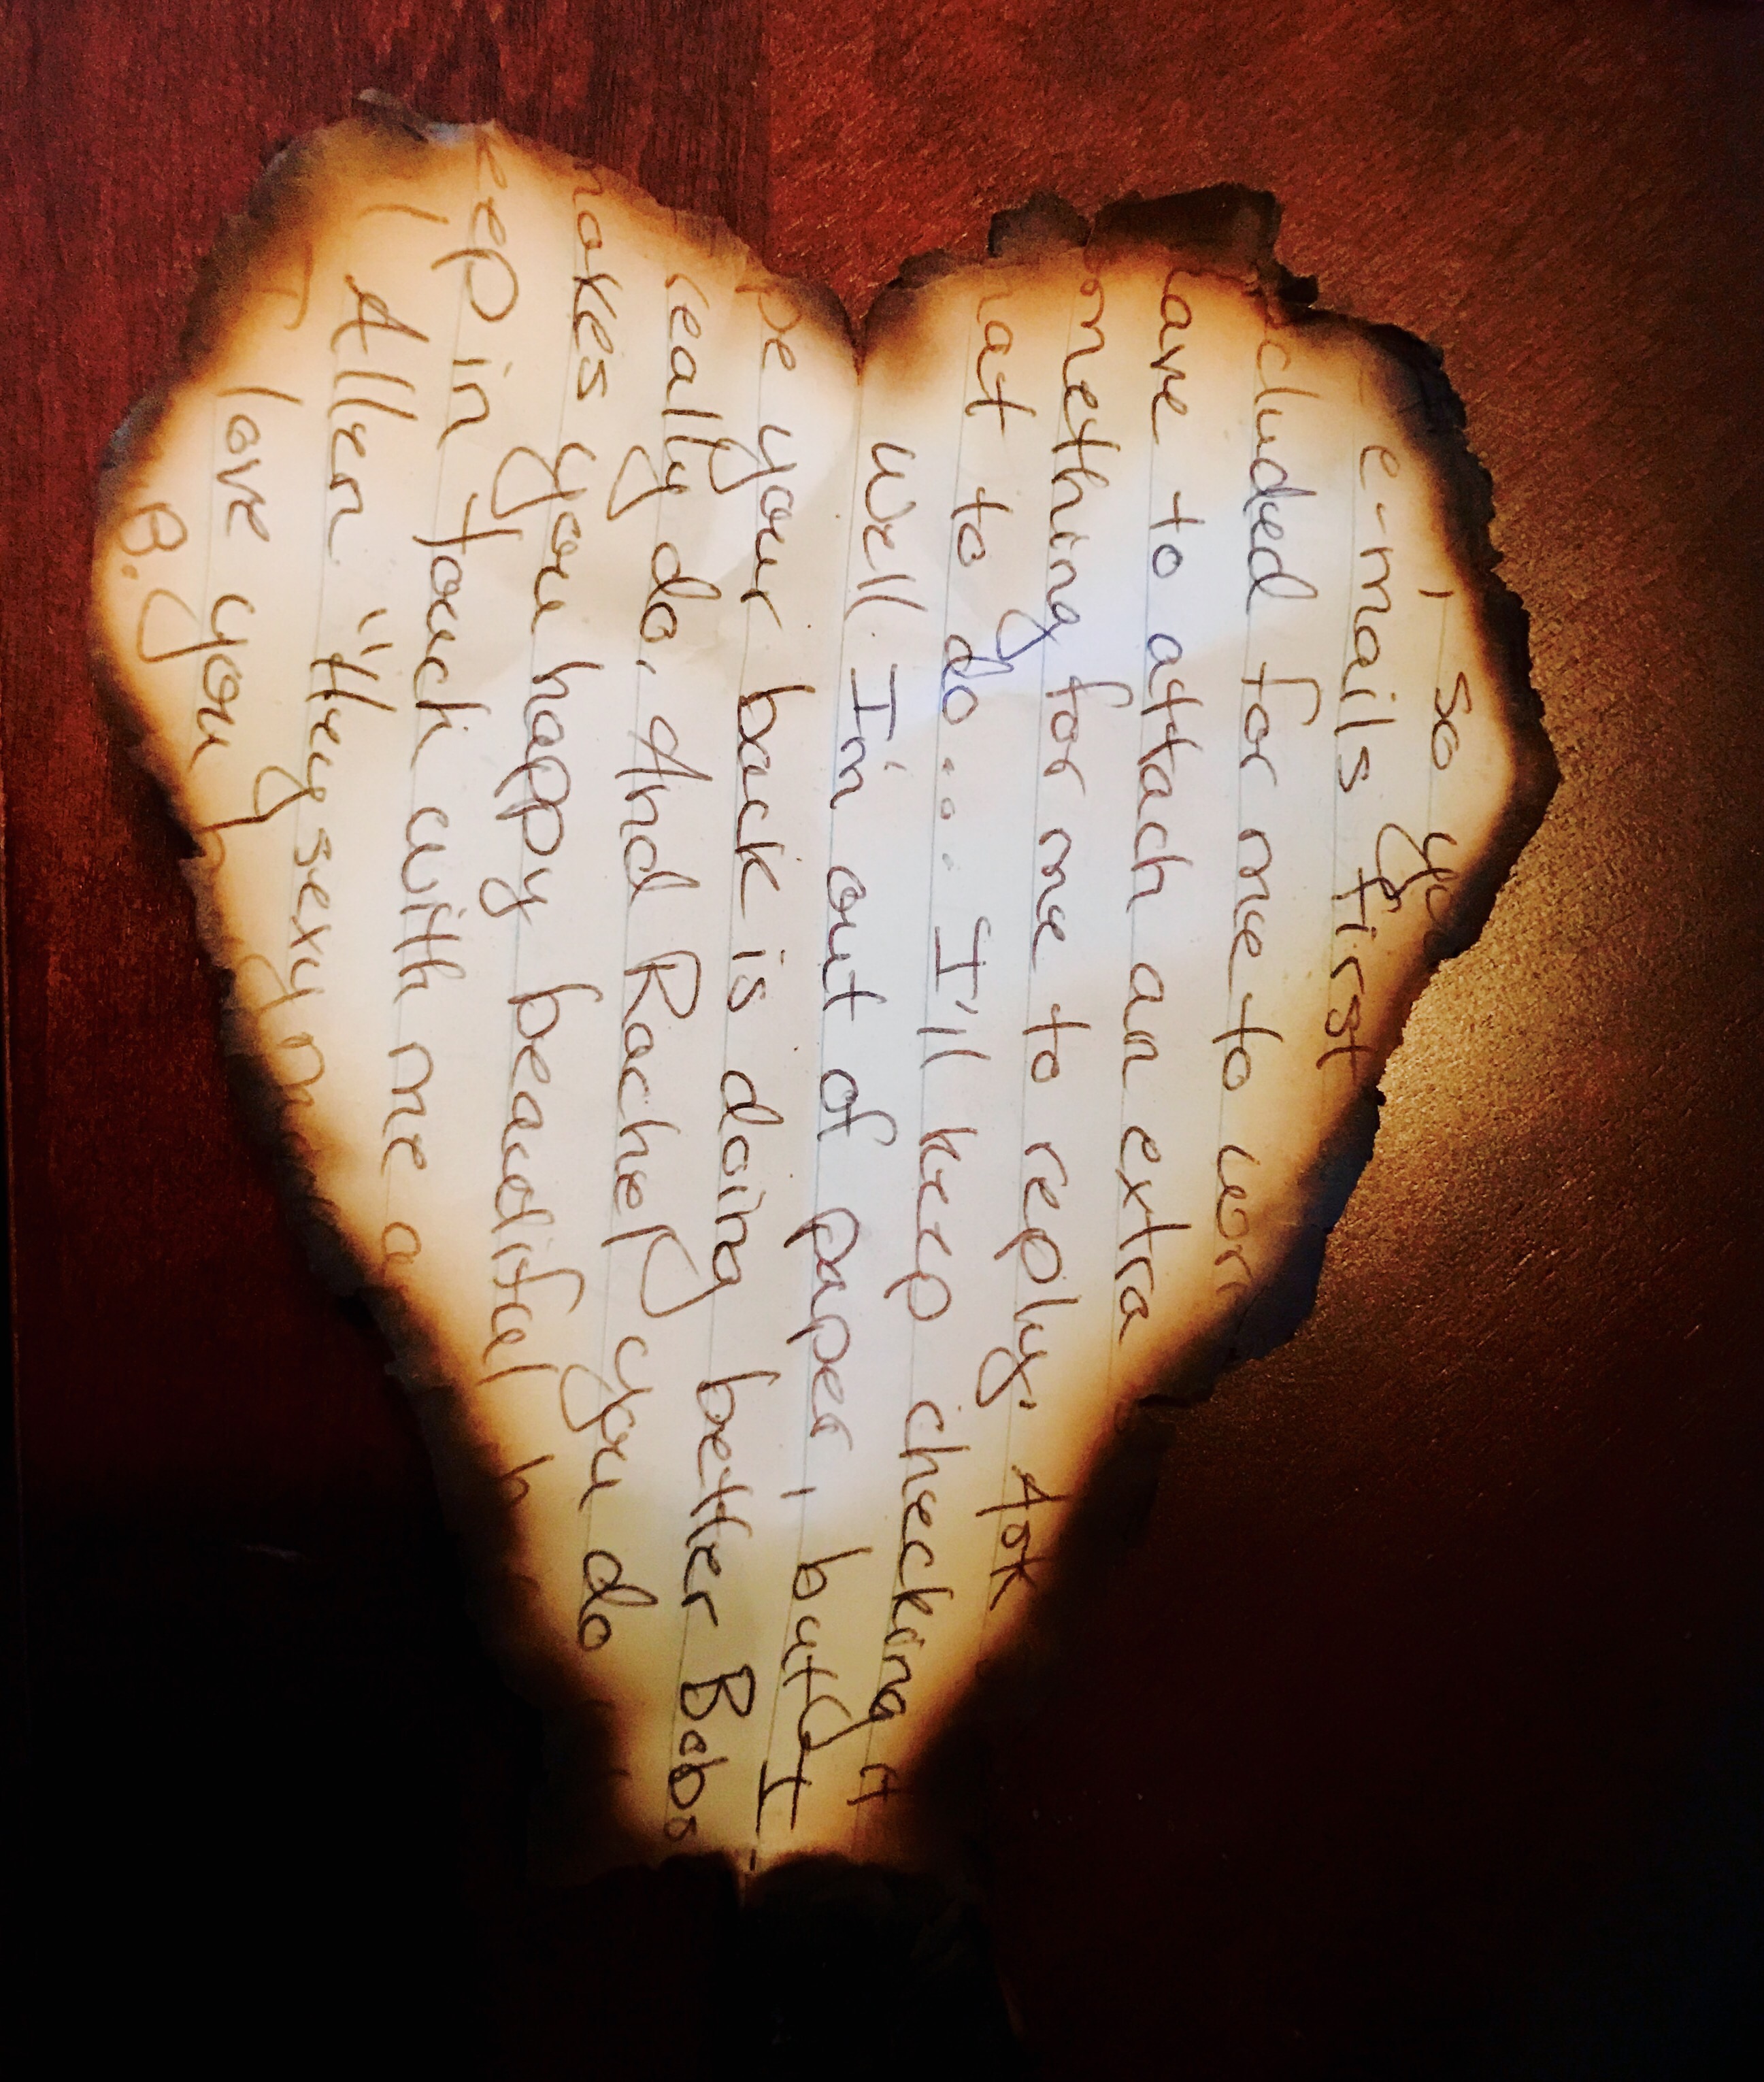 , so
e-mails first
cluded for me to
ave to attach an extra
omething for me to reply. Ask
hat to do... I'll keep checking it
Well I'm out of paper, but I
pe your back is doing better Babs
really do. And Rachel, you do
makes you happy beautiful
eep in touch with me a
Allen "Hey sexy
love you
B.